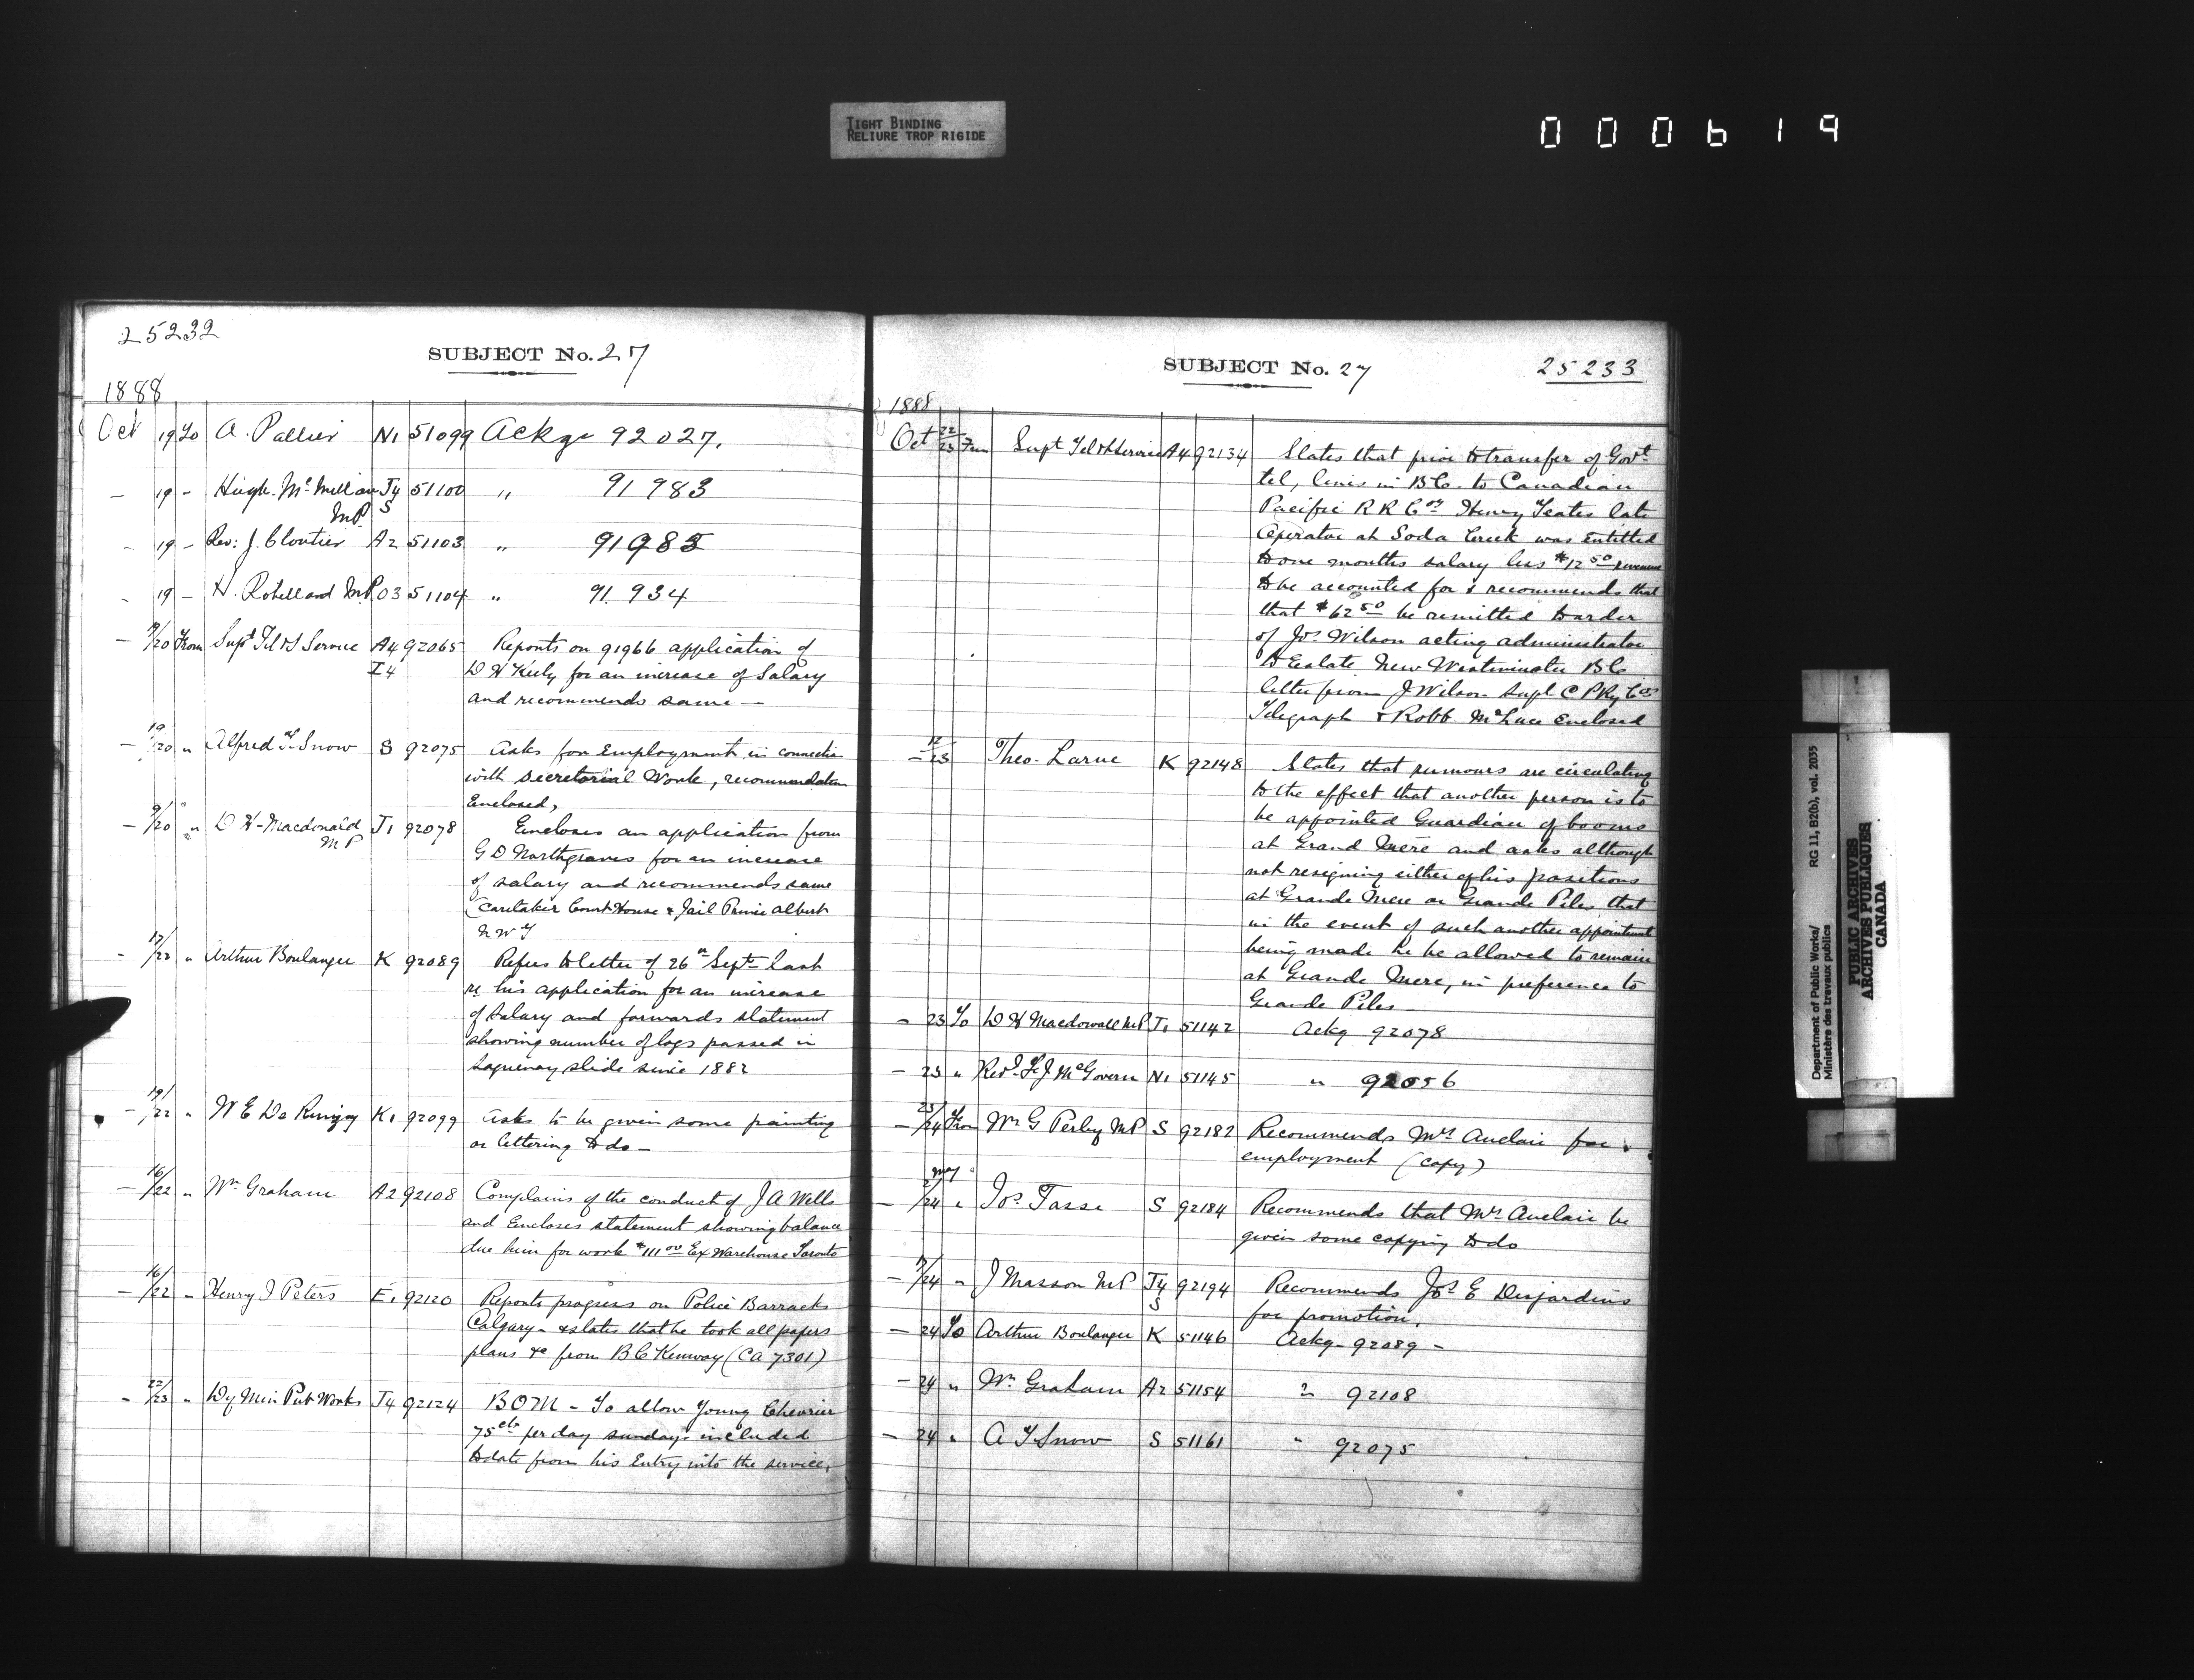 TIGHT BINDING
RELIURE TROP RIGIDE
000619
25232
SUBJECT No. 27
1888
Oct 19 To A. Pallier N1 51099 Ackge 92027.
- 19 - Hugh McMillan J4 51100 " 91983
MP S
- 19 - Rev: J. Cloutier A2 51103 " 91985
- 19 - H. Robillard MP 03 51104 " 91934
- 9/20 From Supt Tel & S Service A4 92065 Reports on 91966 application of
I4 D H Keely for an increase of Salary
and recommends same -
- 19/20 " Alfred T. Snow S 92075 Asks for Employment in connection
with secretarial Work, recommendation
Enclosed,
- 9/20 " D H Macdonald J1 92078 Encloses an application from
MP G D Northgraves for an increase
of salary and recommends same
(Caretaker Court House & Jail Prince Albert
N W T
- 17/22 " Arthur Boulanger K 92089 Refers to letter of 26th Sept last
re his application for an increase
of Salary and forwards statement
showing number of logs passed in
Saguenay slide since 1882
- 19/22 " W E De K1 92099 Asks to be given some painting
or lettering to do -
- 16/22 " Wm Graham A2 92108 Complains of the conduct of J A Wells
and Encloses statement showing balance
due him for work $111 00 Ex Warehouse Toronto
- 16/22 " Henry J Peters E1 92120 Reports progress on Police Barracks
Calgary - & states that he took all papers
plans &c from B C Kenway (CA 7301)
- 22/23 " Dy Min Pub Works J4 92124 BOM - To allow Young Chevrier
75cts per day sundays included
to date from his Entry into the service,
SUBJECT No. 27 25233
1888
Oct 22/23 From Supt Tel & S Service A4 92134 States that prior to transfer of Govt
tel, lines in BC to Canadian
Pacific R R Coy Henry Yeates late
Operator at Soda Creek was Entitled
to one months salary less $12 50 revenue
to be accounted for & recommends that
that $62 50 be remitted to order
of Jos Wilson acting administrator
to Estate New Westminster BC
letter from J Wilson Supt C P Ry Cos
Telegraph & Robb Enclosed
- 12/23 Theo. Larue K 92148 States that rumours are circulating
to the effect that another person is to
be appointed Guardian of booms
at Grand Mère and asks although
not resigning either of his positions
at Grande Mere or Grande Piles that
in the event of such another appointment
being made he be allowed to remain
at Grande Mere, in preference to
Grande Piles
- 23 To D H Macdowall MP J1 51142 Ackg 92078
- 23 " Revd F J McGovern N1 51145 " 92056
- 23/24 From Wm G Perley MP S 92182 Recommends Mrs Auclair for
employment (copy)
May
- 2/24 " Jos. Tasse S 92184 Recommends that Mrs Auclair be
given some copying to do
- 17/24 " J Masson MP J4 92194 Recommends Jos E Desjardins
S for promotion.
- 24 To Arthur Boulanger K 51146 Ackg - 92089 -
- 24 " Wm Graham A2 51154 " 92108
- 24 " A T Snow S 51161 " 92075
Department of Public Works/ RG 11, B2(b), vol. 2035
Ministère des travaux publics
PUBLIC ARCHIVES
ARCHIVES PUBLIQUES
CANADA